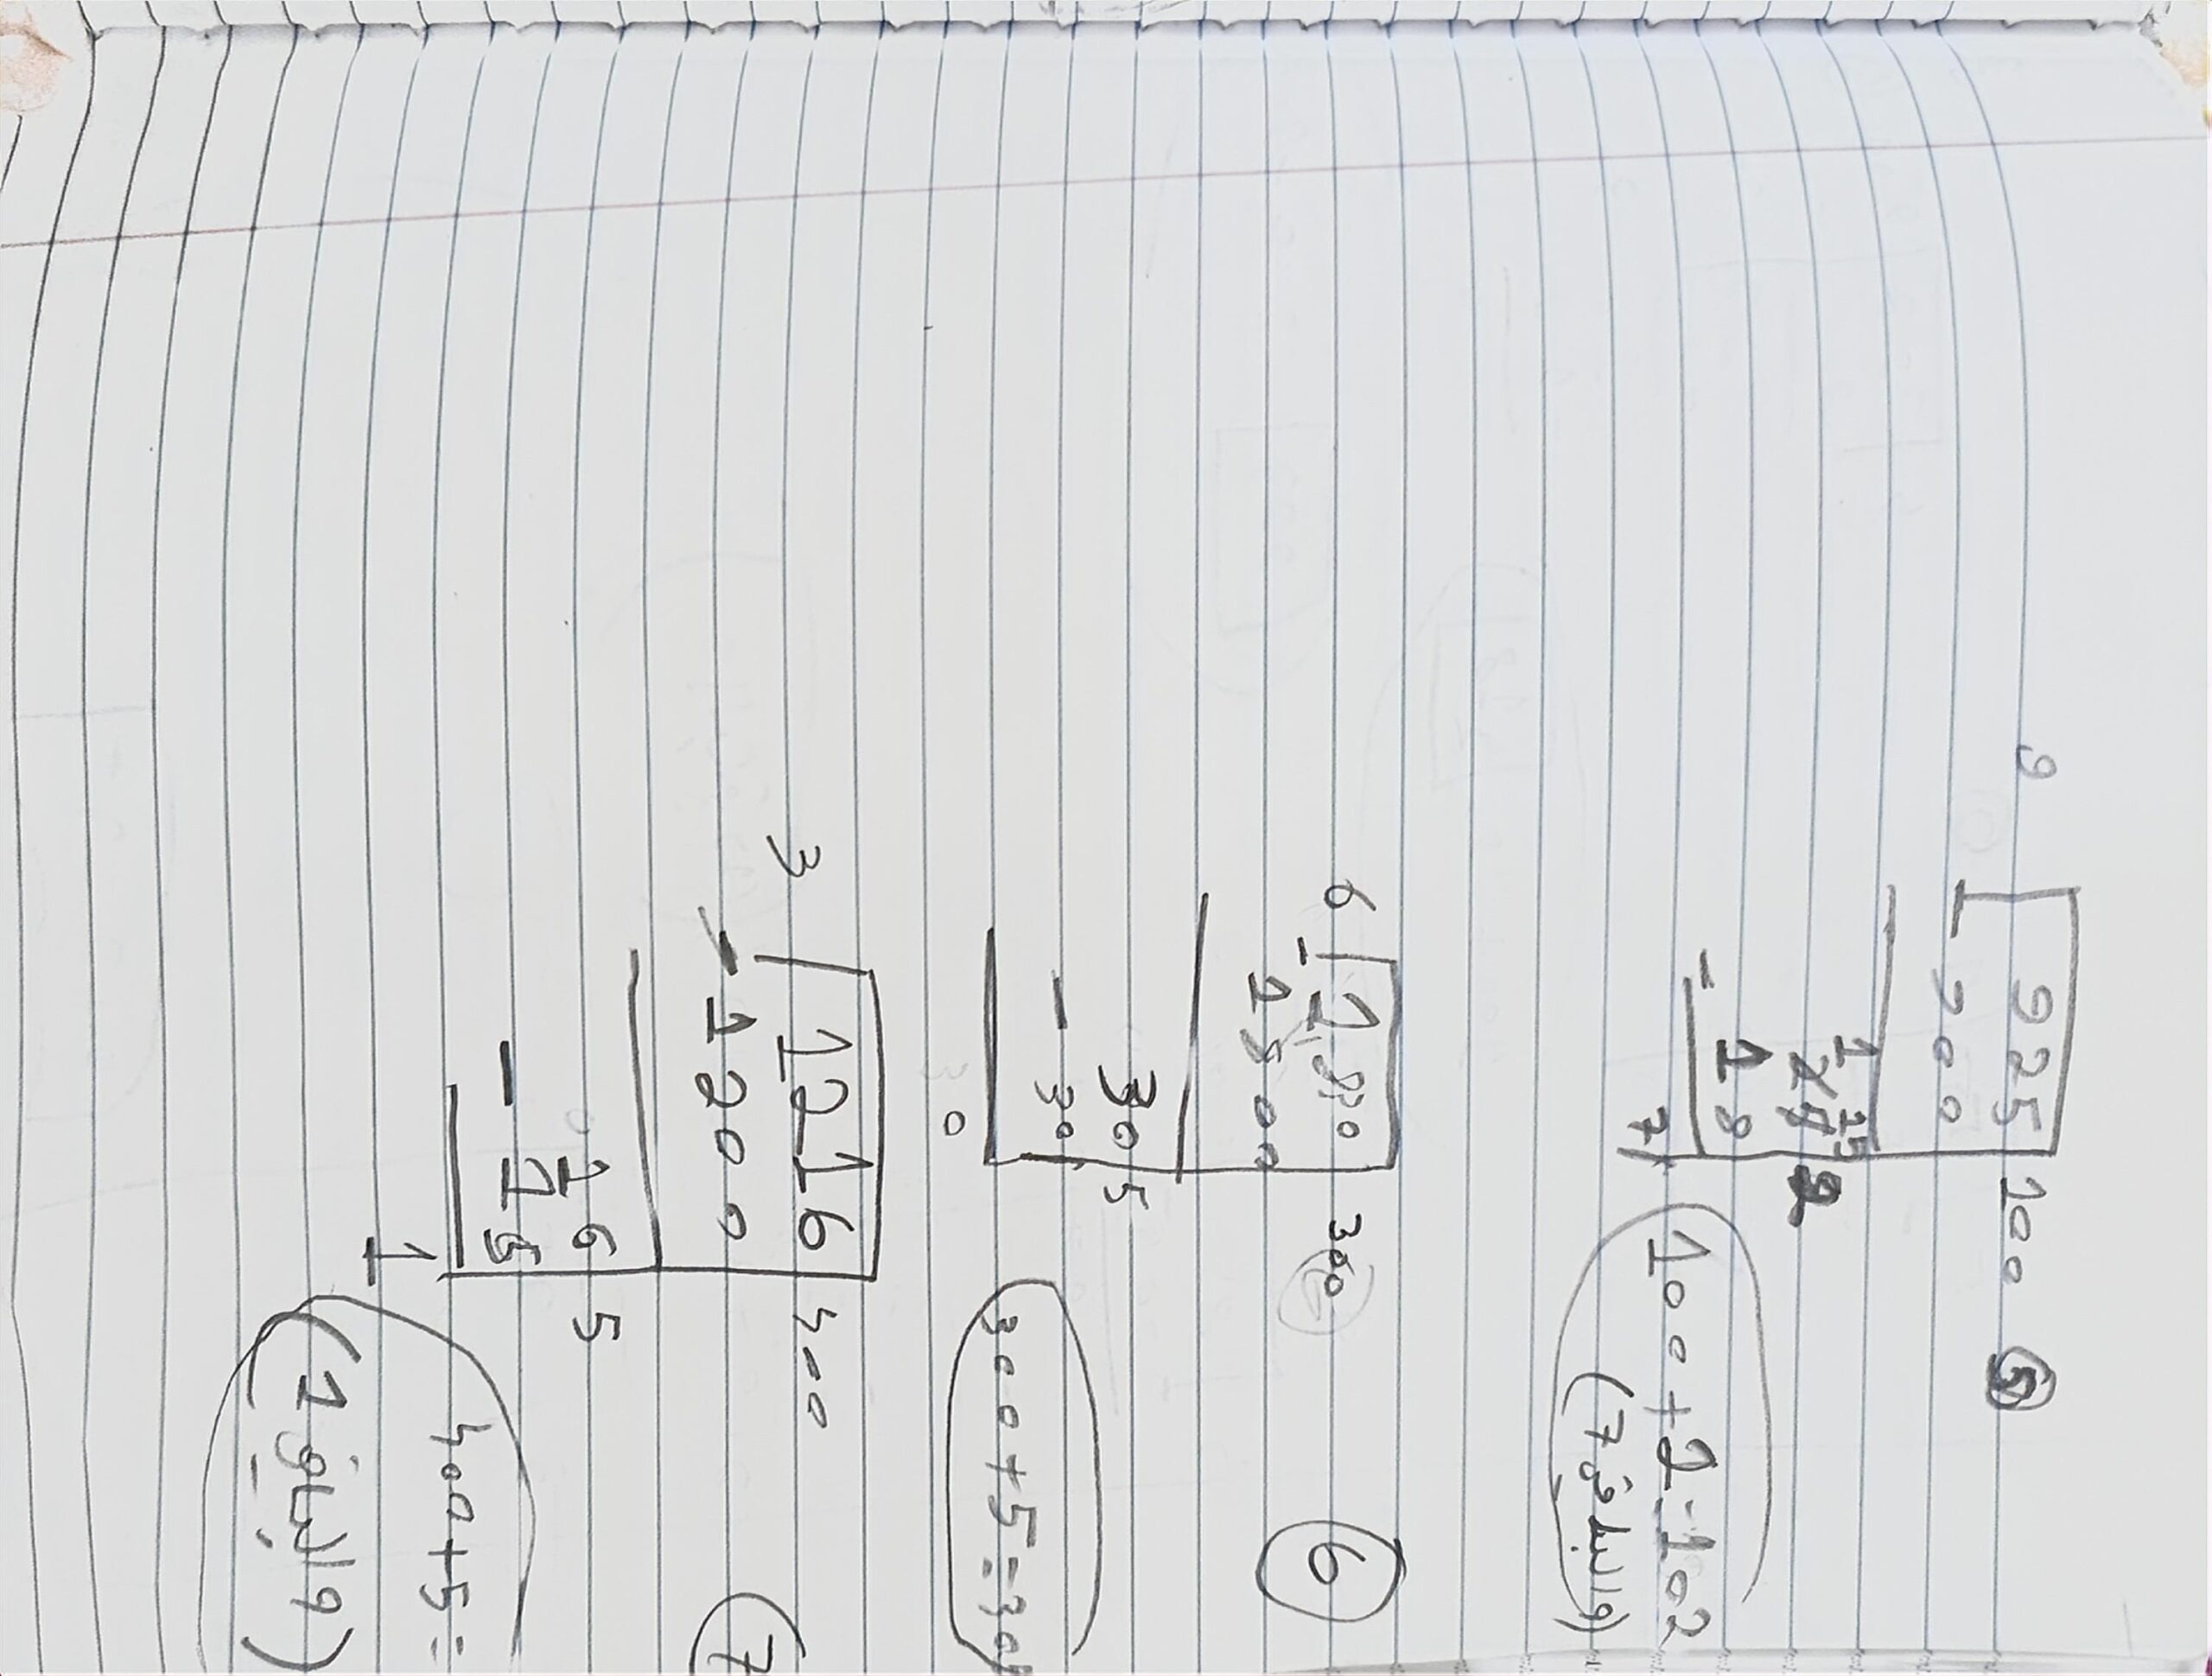 9 925 100 ⑤
- 900
1 15
25 2
- 18
7
100 + 2 = 102
(والباقي 7)
6 1830 300 ⑥
- 1800
30 5
- 30
0
300 + 5 = 30
3 1216 400 ⑦
- 1200
016 5
- 15
1
400 + 5 =
(والباقي 1)